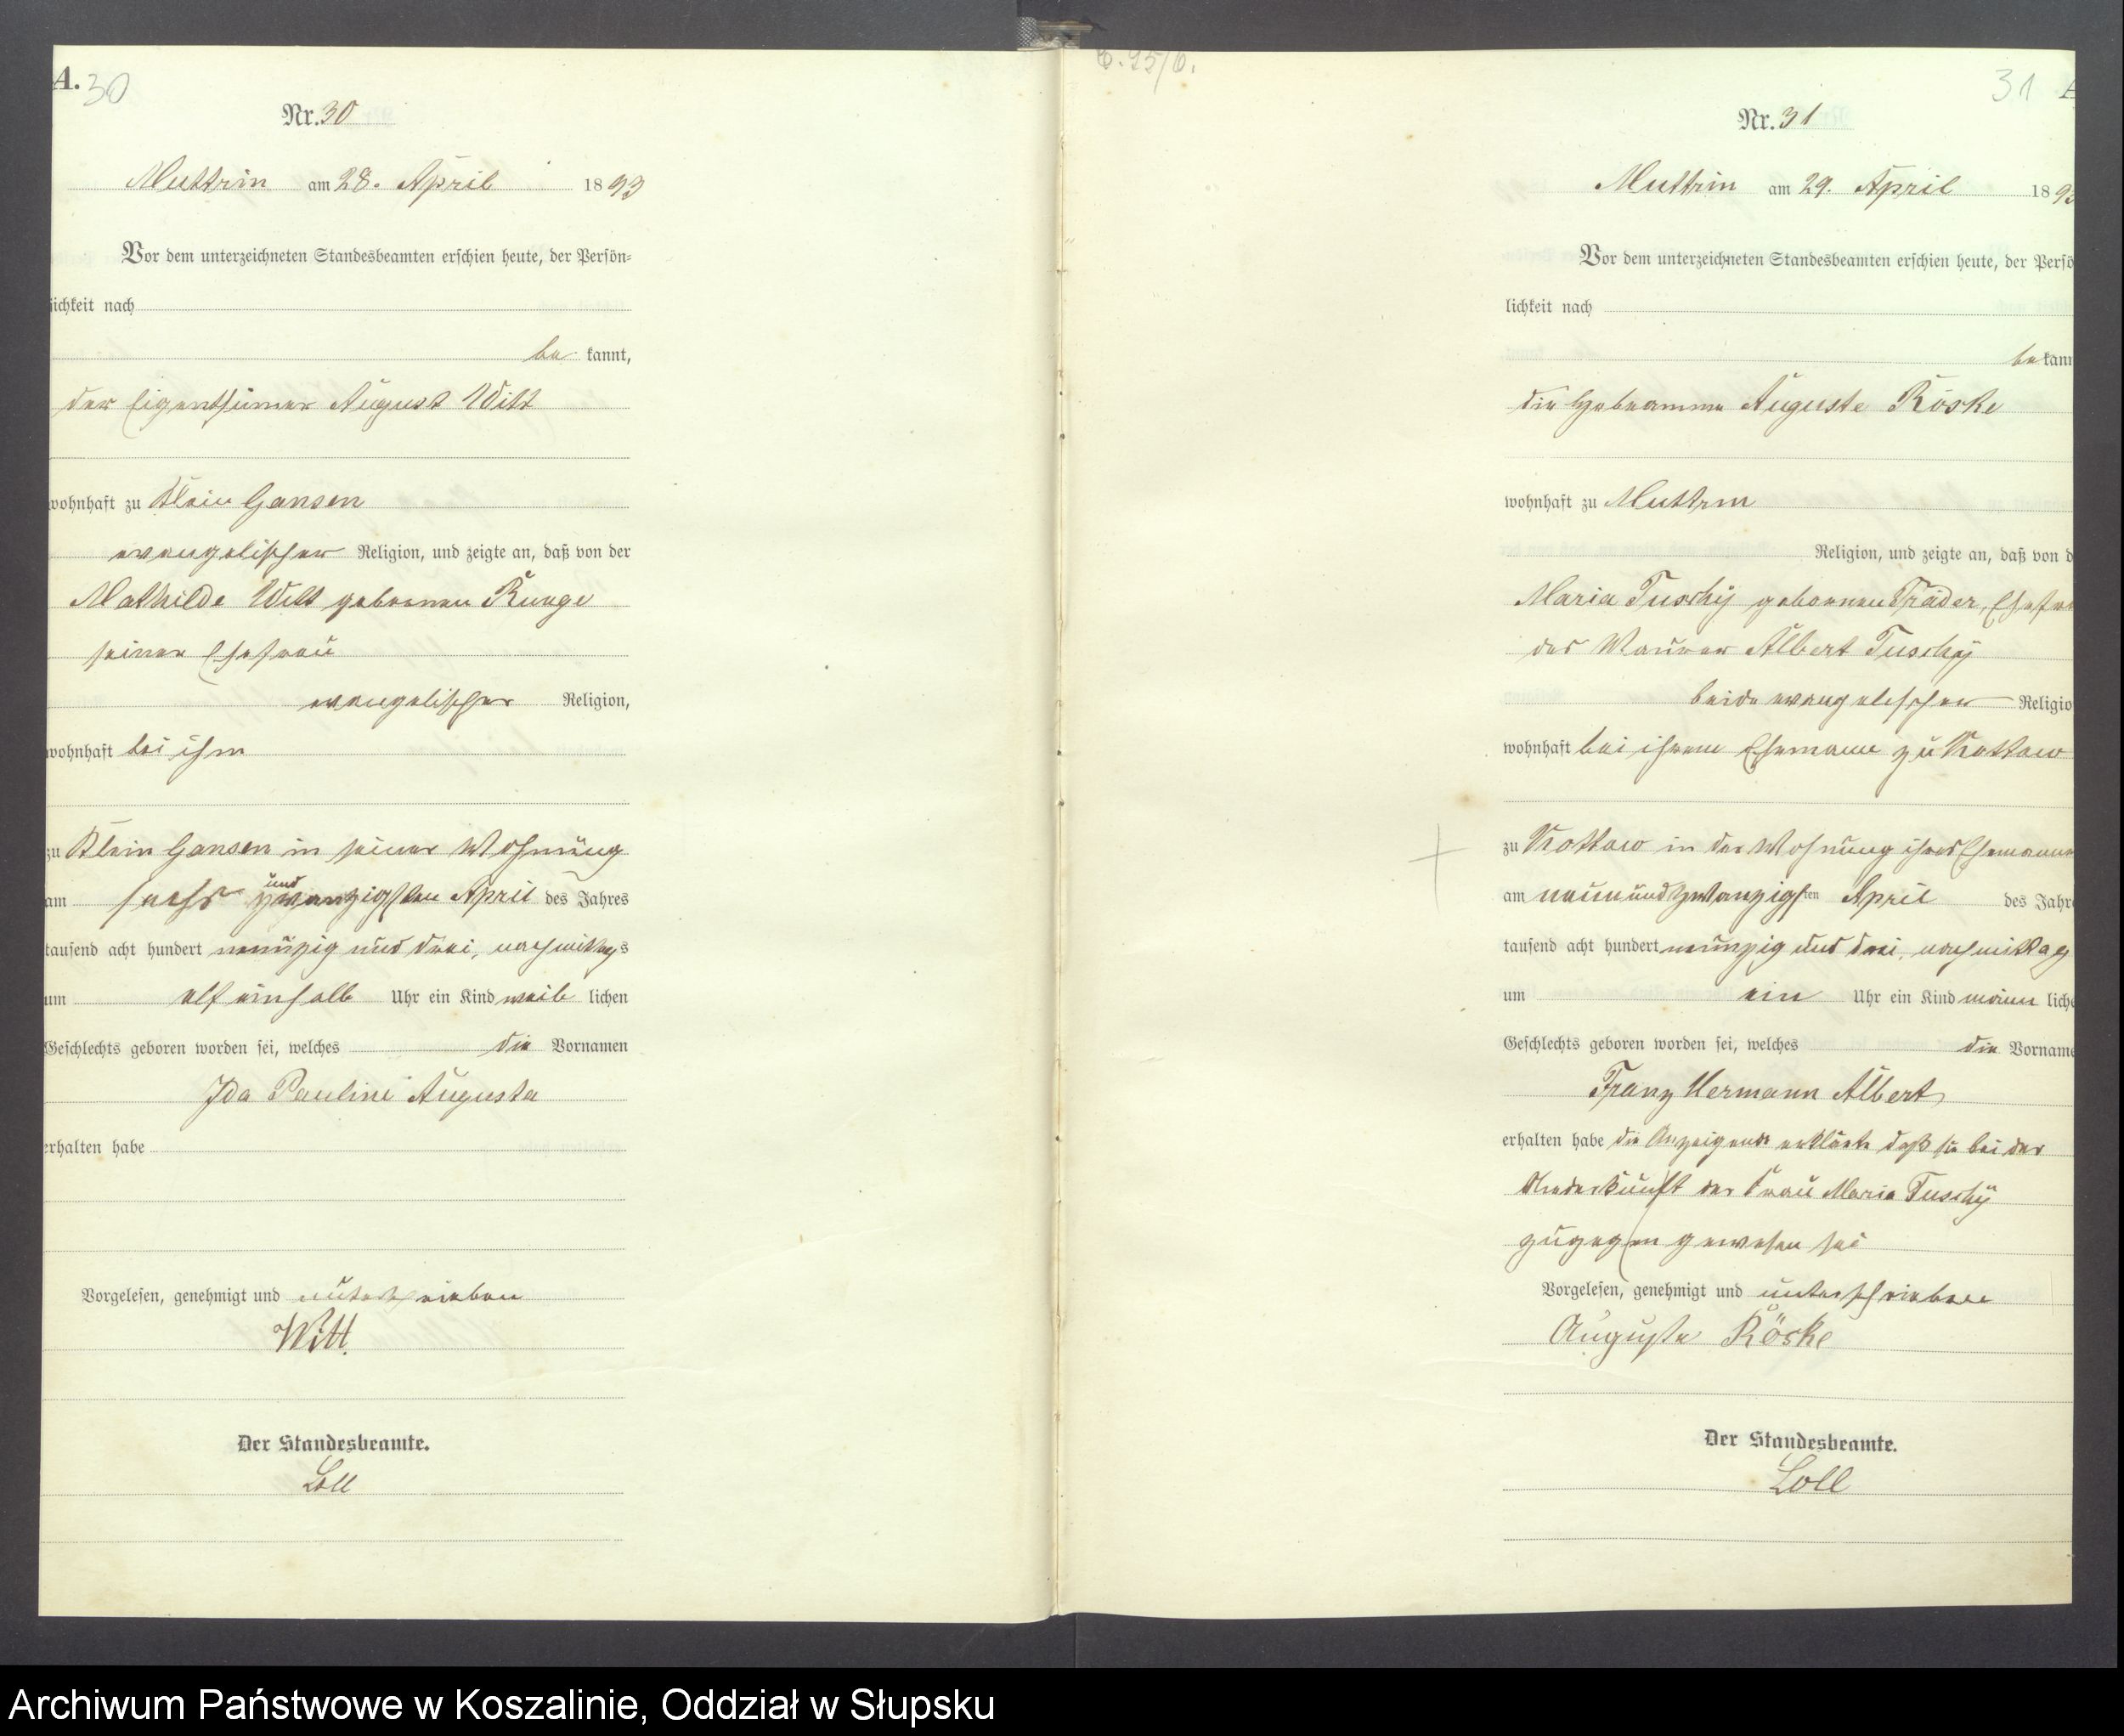 A. 30
Nr. 30
Muttrin am 28. April 1893
Vor dem unterzeichneten Standesbeamten erschien heute, der Persön-
lichkeit nach
be kannt,
der Eigenthümer August Witt
wohnhaft zu Klein Gansen
evangelischer Religion, und zeigte an, daß von der
Mathilde Witt geborenen Runge
seiner Ehefrau
evangelischer Religion,
wohnhaft bei ihm
zu Klein Gansen in seiner Wohnung
am sechs und zwanzigsten April des Jahres
tausend acht hundert neunzig und drei, nachmittags
um elf einhalb Uhr ein Kind weib lichen
Geschlechts geboren worden sei, welches die Vornamen
Ida Pauline Augusta
erhalten habe
Vorgelesen, genehmigt und unterschrieben
Witt.
Der Standesbeamte.
Loll
31
Nr. 31
Muttrin am 29. April 1893
Vor dem unterzeichneten Standesbeamten erschien heute, der Persö
lichkeit nach
be kann
die Hebeamme Auguste Röske
wohnhaft zu Muttrin
Religion, und zeigte an, daß von d
Maria Tuschÿ geborenen Träder, Ehefra
des Maurer Albert Tuschÿ
beide evangelischer Religio
wohnhaft bei ihrem Ehemanne zu Kottow
zu Kottow in der Wohnung ihres Ehemanne
am neunundzwanzigsten April des Jahre
tausend acht hundert neunzig und drei, nachmittag
um ein Uhr ein Kind männ liche
Geschlechts geboren worden sei, welches die Vorname
Franz Hermann Albert
erhalten habe die Anzeigende erklärte daß sie bei der
Niederkunft der Frau Maria Tuschÿ
zugegen gewesen sei
Vorgelesen, genehmigt und unterschrieben
Auguste Röske
Der Standesbeamte.
Loll
Archiwum Państwowe w Koszalinie, Oddział w Słupsku